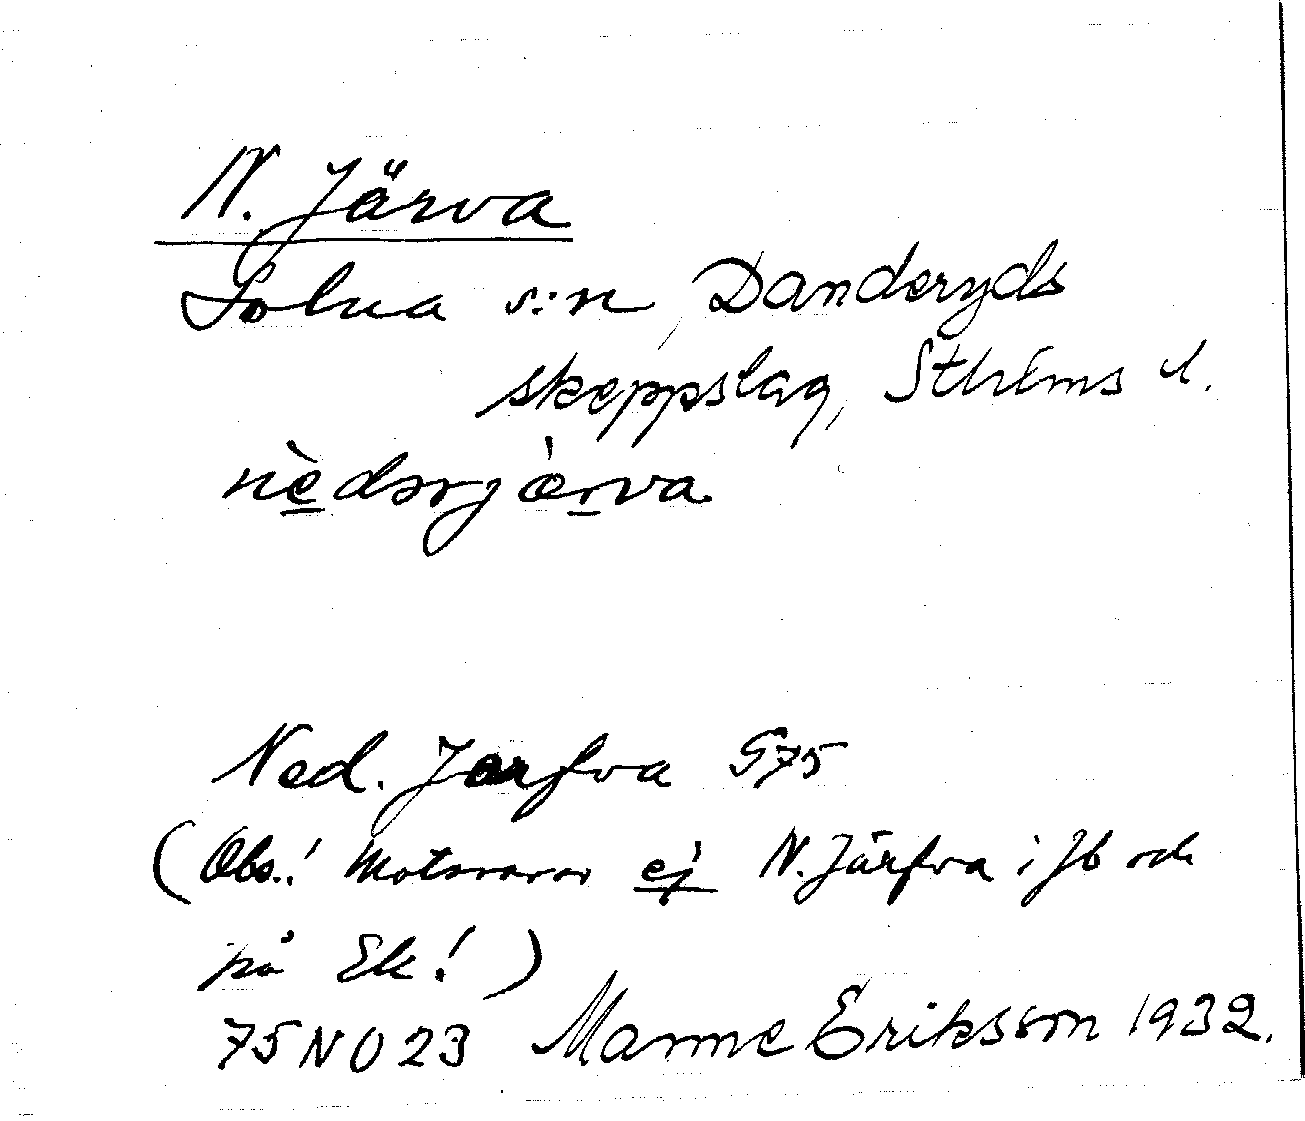 N. Järva
Solna s:n, Danderyds
skeppslag, Sthlms l.
nèdərjæ̀rva
Ned. Jerfva S75
(Obs.! Motsvarar ej N. Järfva i Jb och
på Ek!)
75NO23 Manne Eriksson 1932.